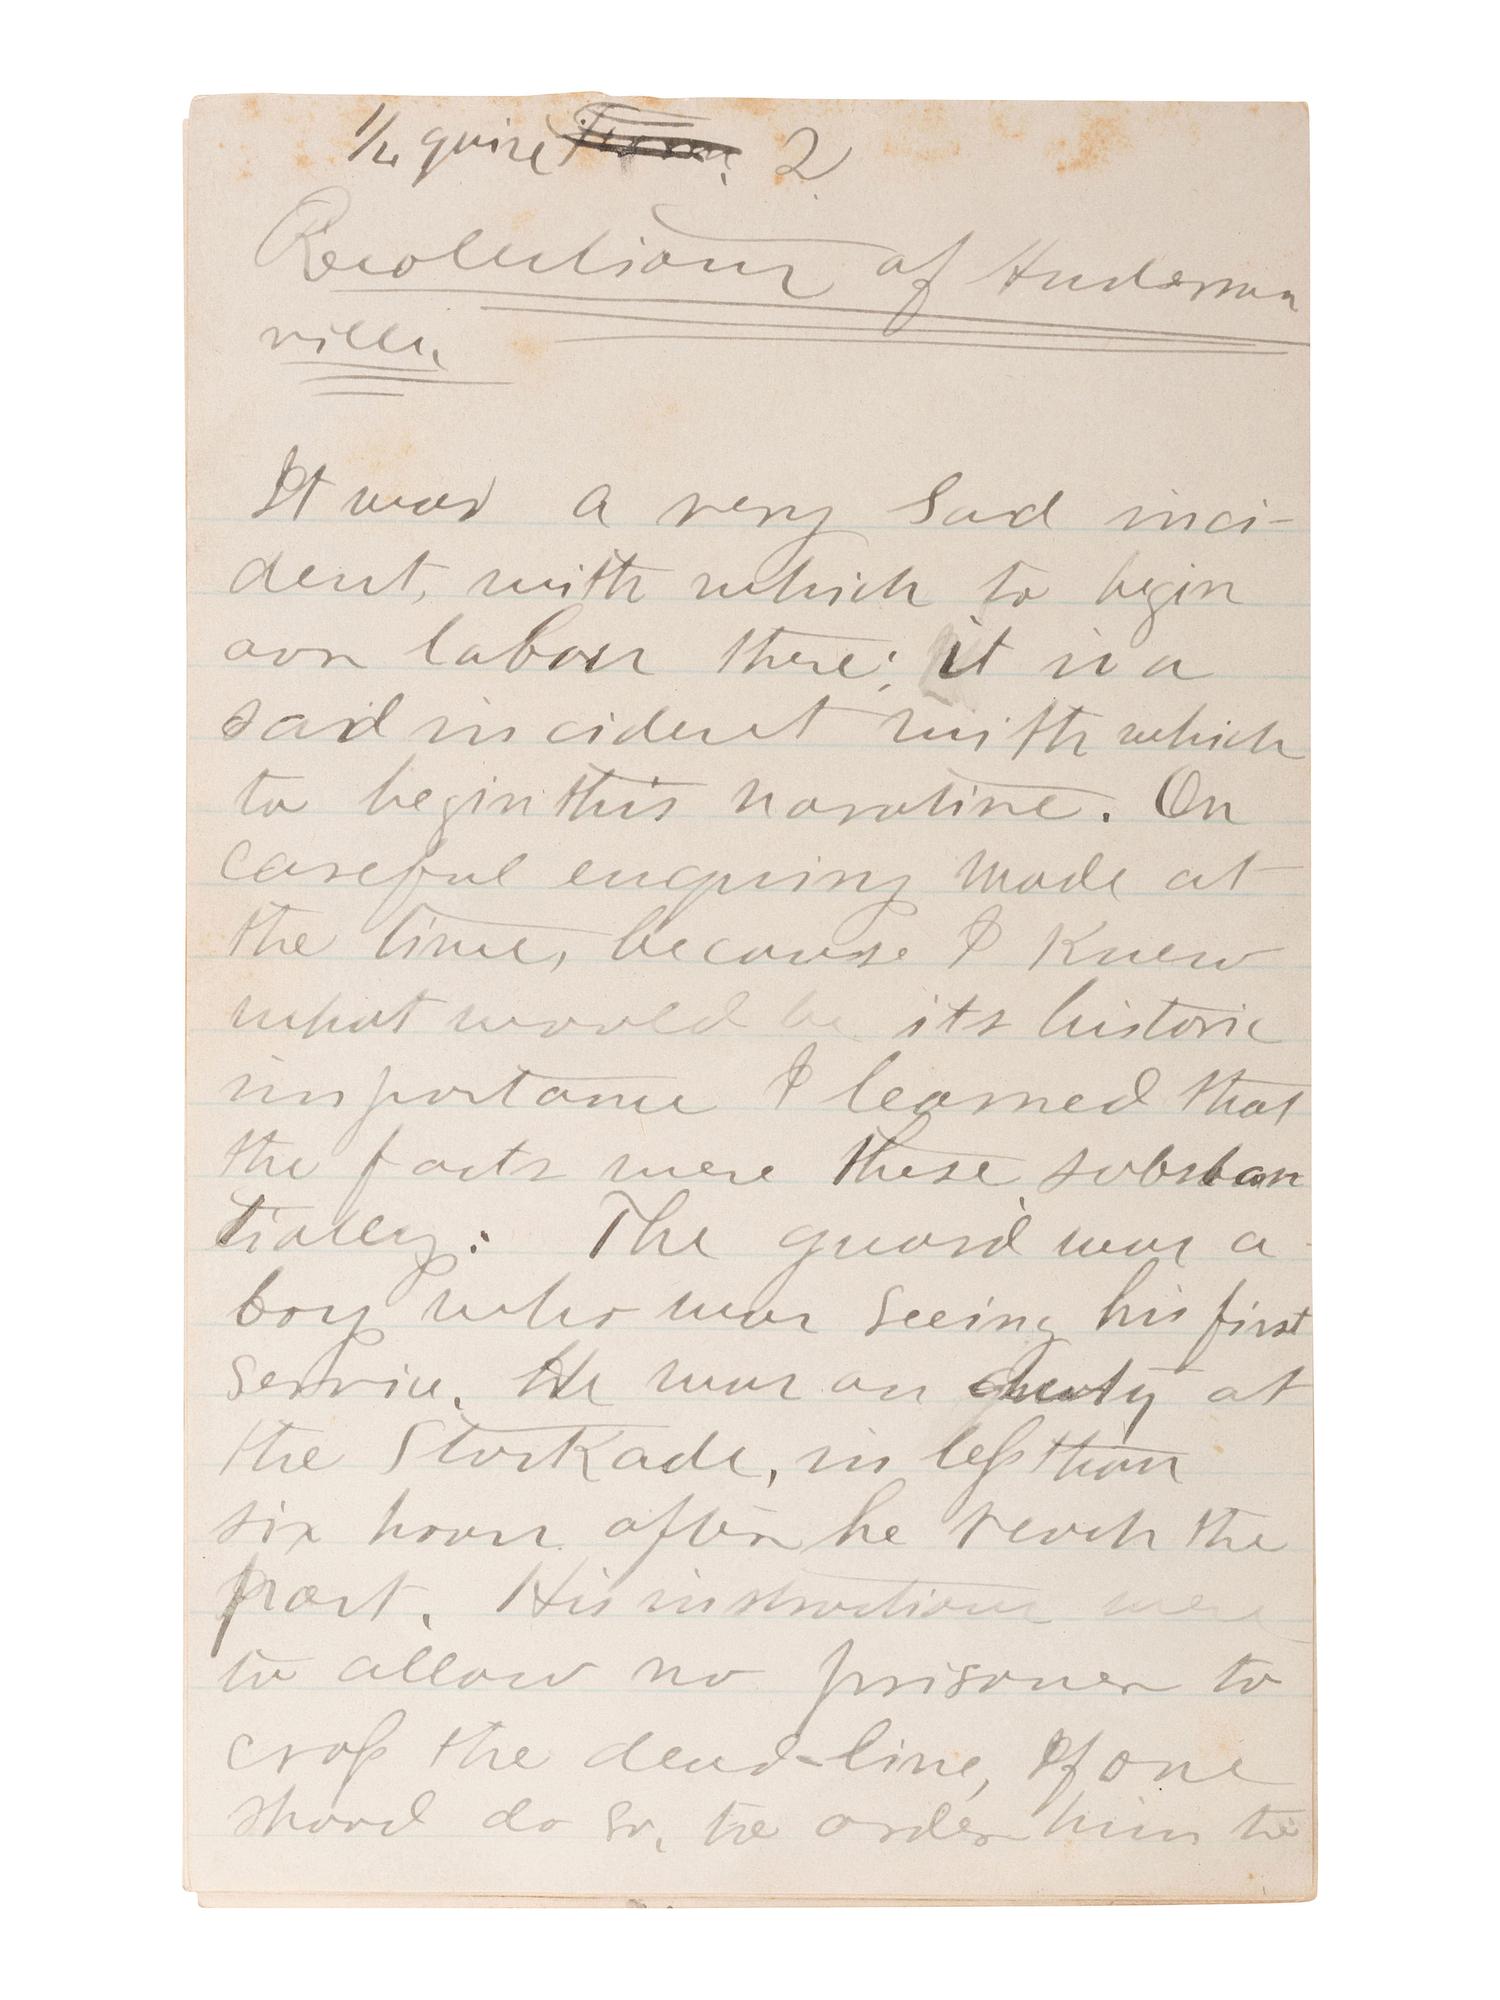 1/2 quire 2
Recolections of Anderson
ville.
It was a very sad inci-
dent, with which to begin
our labour there; it is a
sad incident with which
to begin this narative. On
careful enquiring made at
the time, because I knew
what would be its historic
importance I learned that
the facts were these substan
tialley: The guard was a
boy who was seeing his first
service. He was on duty at
the Stockade, in less than
six hours after he reach the
post. His instructions were
to allow no prisoner to
cross the dead-line, If one
shoud do so, to order him to